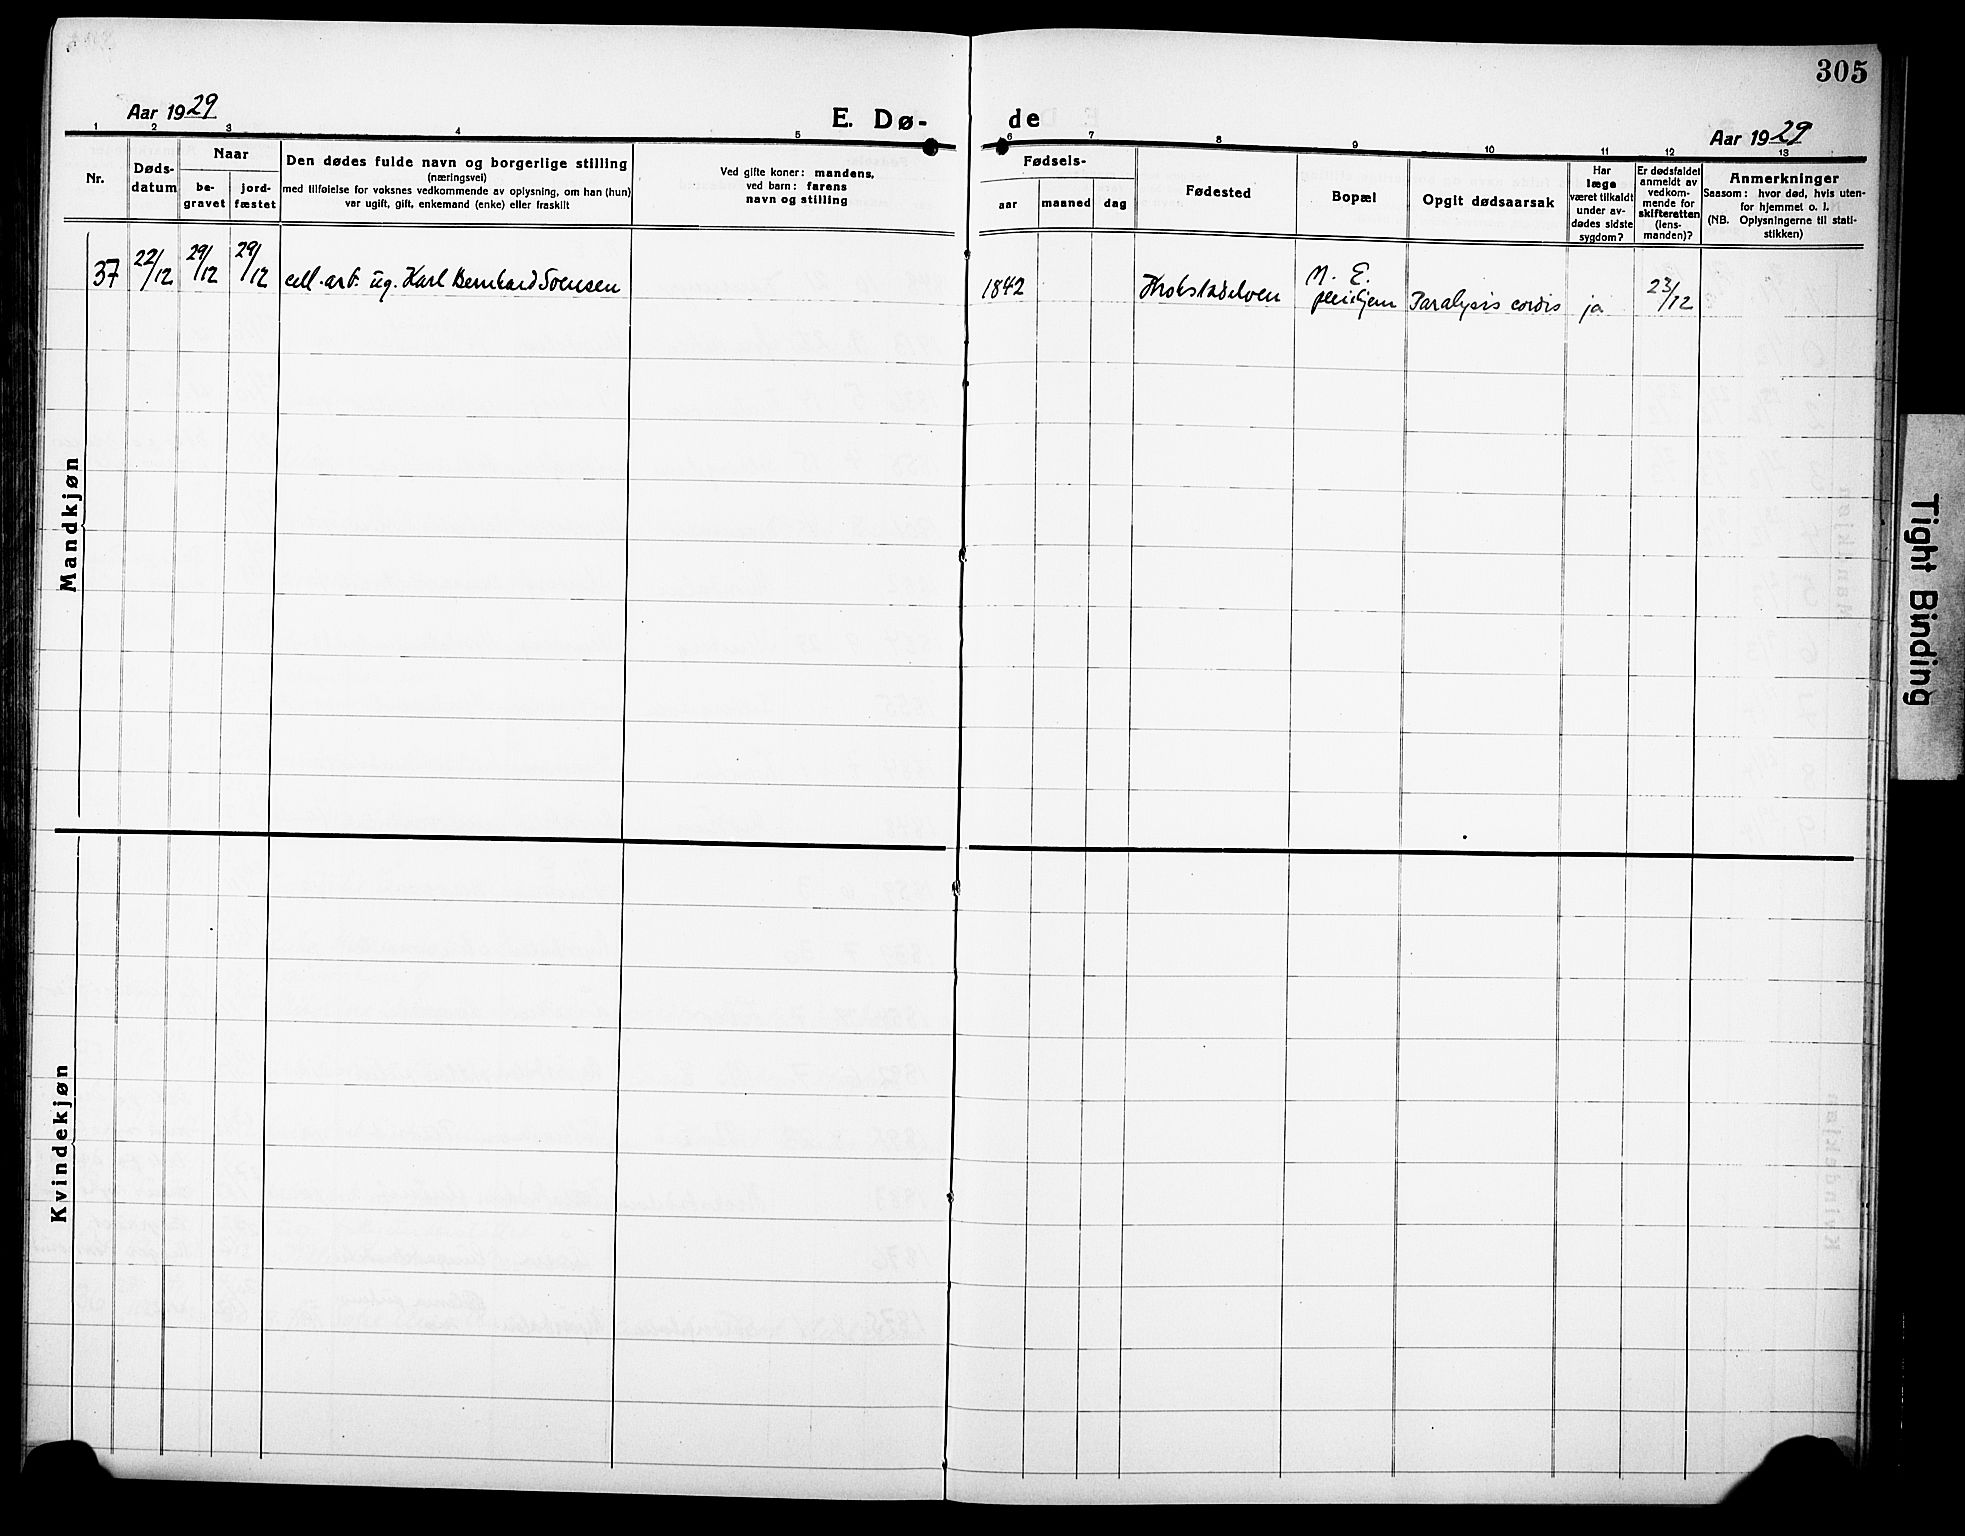 305
Aar 1929
E. Dø-
de
Aar 1929
1 2 3 4 5 6 7 8 9 10 11 12 13
Nr.
Døds-
datum
Naar
be-
gravet
jord-
fæstet
Den dødes fulde navn og borgerlige stilling
(næringsvei)
med tilføielse for voksnes vedkommende av oplysning, om han (hun)
var ugift, gift, enkemand (enke) eller fraskilt
Ved gifte koner: mandens,
ved barn: farens
navn og stilling
Fødsels-
aar maaned dag
Fødested
Bopæl
Opgit dødsaarsak
Har
læge
været tilkaldt
under av-
dødes sidste
sygdom?
Er dødsfaldet
anmeldt av
vedkom-
mende for
skifteretten
(lens-
manden)?
Anmerkninger
Saasom: hvor død, hvis uten-
for hjemmet o. l.
(NB. Oplysningerne til stati-
stikken)
37 22/12 29/12 29/12 cell. arb. ug. Karl Bernhard Sørensen 1842 Krokstadelven N. E.
pleiehjem Paralysis cordis ja 23/12
Mandkjøn
Kvindekjøn
Tight Binding